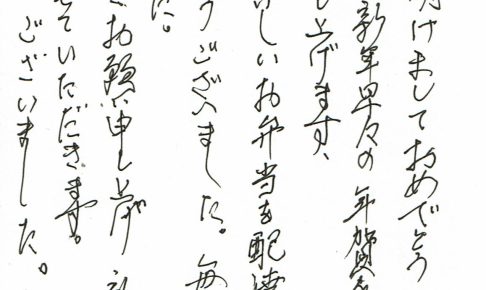 明けましておめでとう
新年早々の年賀を
し上げます、
いしいお弁当を配達
うございました。毎
た。
お願い申し上げ
せていただきます。
ございました。